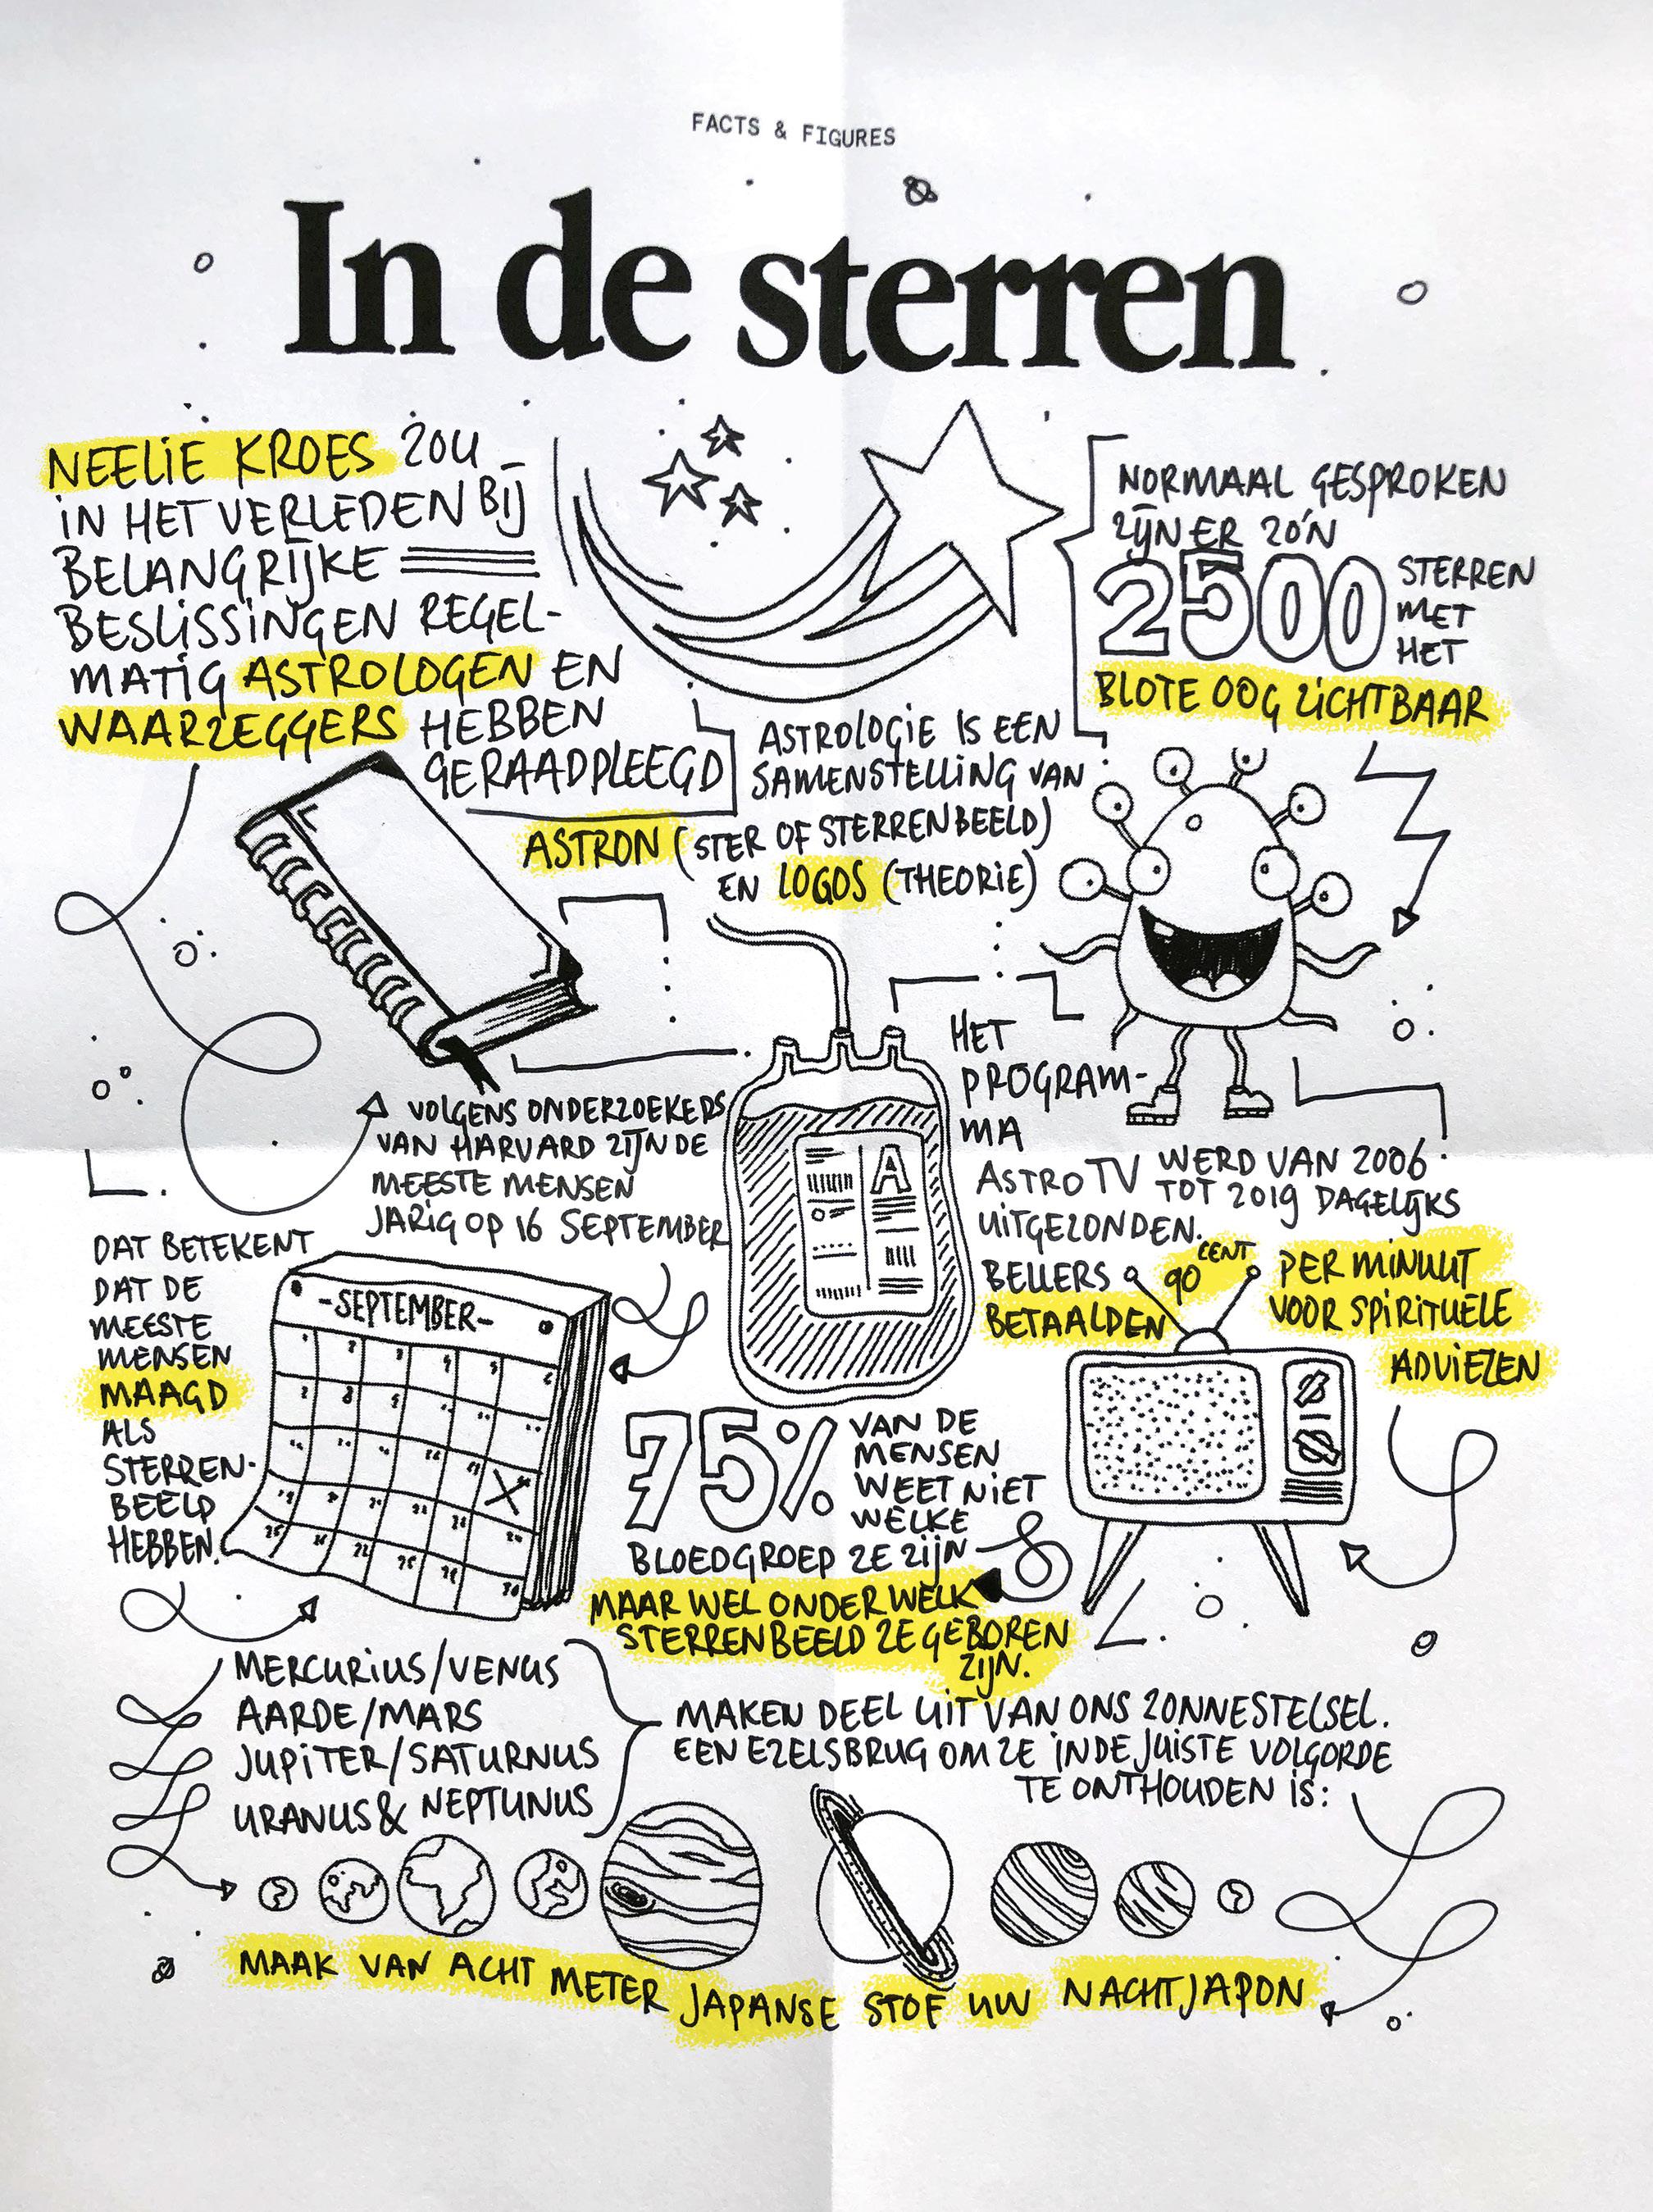 FACTS & FIGURES
In de sterren
NEELIE KROES ZOU
IN HET VERLEDEN BIJ
BELANGRIJKE
BESLISSINGEN REGEL-
MATIG ASTROLOGEN EN
WAARZEGGERS HEBBEN
GERAADPLEEGD
NORMAAL GESPROKEN
ZIJN ER ZO'N
2500 STERREN
MET
HET
BLOTE OOG ZICHTBAAR
ASTROLOGIE IS EEN
SAMENSTELLING VAN
ASTRON (STER OF STERRENBEELD)
EN LOGOS (THEORIE)
VOLGENS ONDERZOEKERS
VAN HARVARD ZIJN DE
MEESTE MENSEN
JARIG OP 16 SEPTEMBER
A
HET
PROGRAM-
MA
ASTRO TV WERD VAN 2006
TOT 2019 DAGELIJKS
UITGEZONDEN.
BELLERS
BETAALDEN
90 CENT
PER MINUUT
VOOR SPIRITUELE
ADVIEZEN
DAT BETEKENT
DAT DE
MEESTE
MENSEN
MAAGD
ALS
STERREN-
BEELD
HEBBEN.
-SEPTEMBER-
75% VAN DE
MENSEN
WEET NIET
WELKE
BLOEDGROEP ZE ZIJN
MAAR WEL ONDER WELK
STERRENBEELD ZE GEBOREN
ZIJN.
MERCURIUS/VENUS
AARDE/MARS
JUPITER/SATURNUS
URANUS & NEPTUNUS
MAKEN DEEL UIT VAN ONS ZONNESTELSEL.
EEN EZELSBRUG OM ZE IN DE JUISTE VOLGORDE
TE ONTHOUDEN IS:
MAAK VAN ACHT METER JAPANSE STOF UW NACHTJAPON